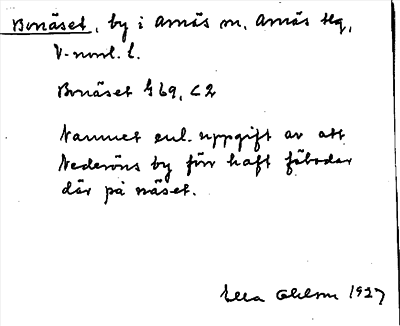 Bonäset, by i Arnäs sn, Arnäs tlg,
V-norrl. l.
Bonäset G 69, C2
Namnet enl. uppgift av att
Nederöns by förr haft fäbodar
där på näset.
Ella Ohlson 1927